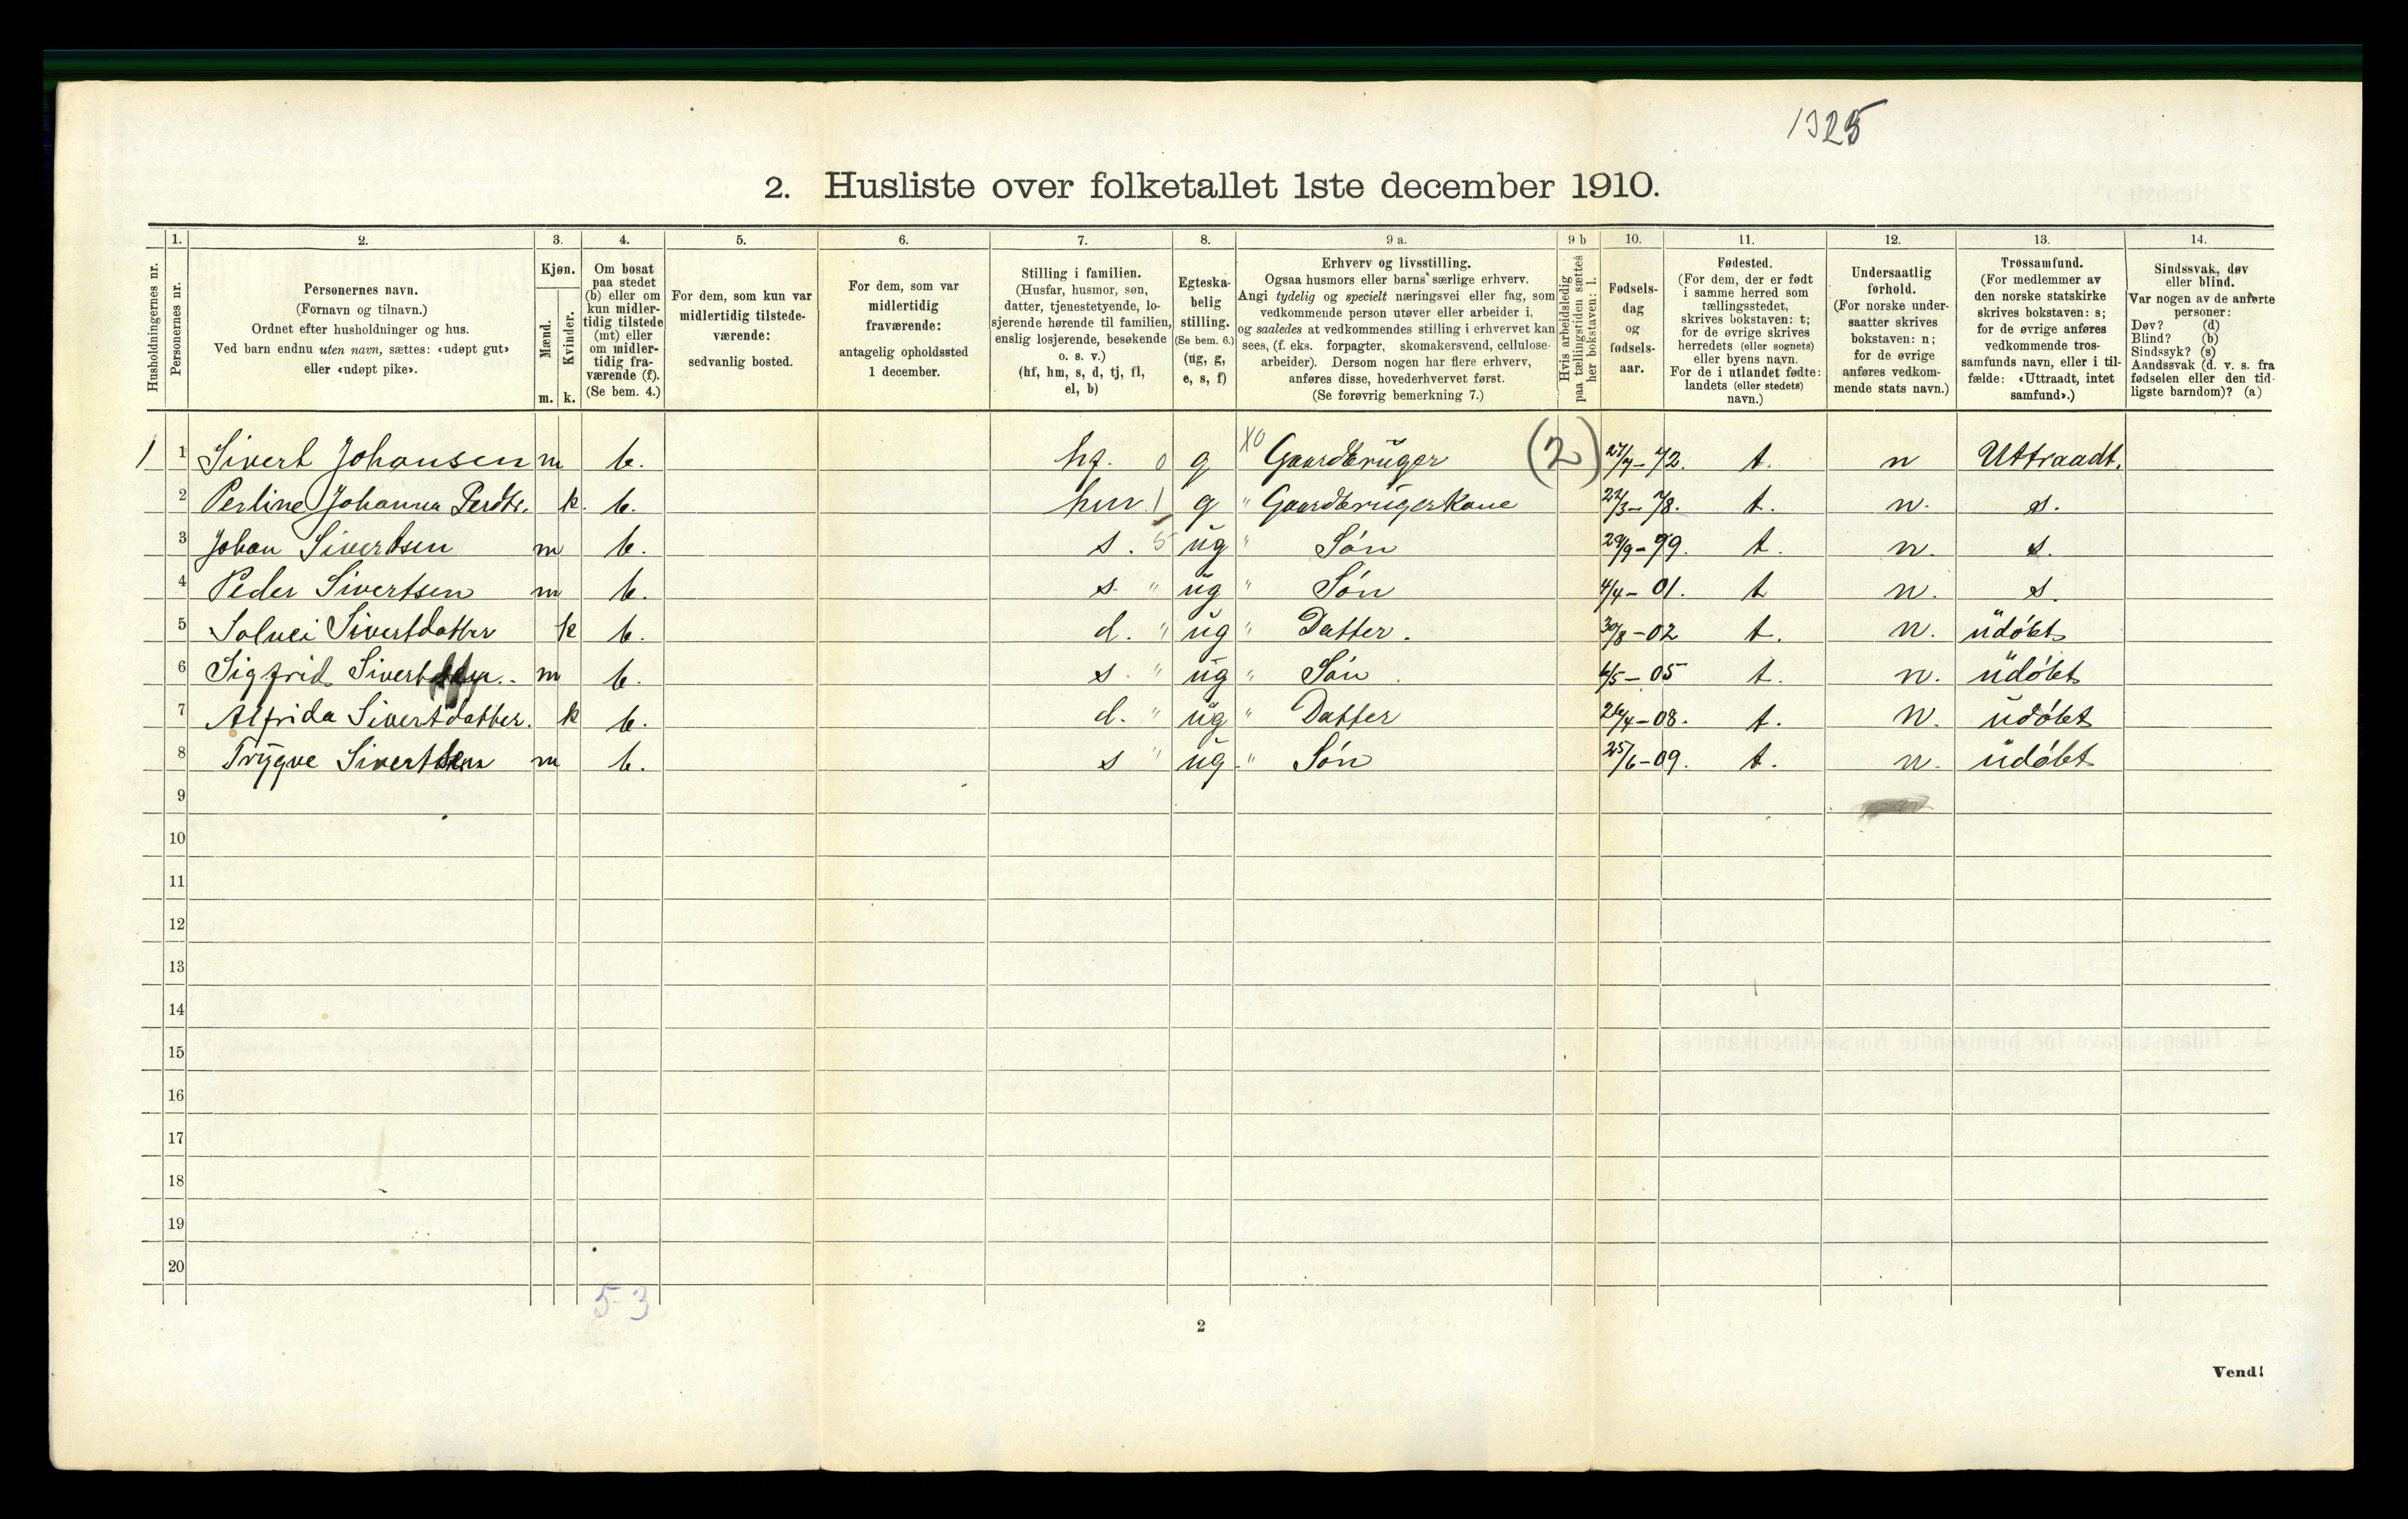 1325
2. Husliste over folketallet 1ste december 1910.
1. 2. 3. 4. 5. 6. 7. 8. 9 a. 9 b 10. 11. 12. 13. 14.
Husholdningernes nr.
Personernes nr.
Personernes navn.
(Fornavn og tilnavn.)
Ordnet efter husholdninger og hus.
Ved barn endnu uten navn, sættes: «udøpt gut»
eller «udøpt pike».
Kjøn.
Mænd.
Kvinder.
m. k.
Om bosat
paa stedet
(b) eller om
kun midler-
tidig tilstede
(mt) eller
om midler-
tidig fra-
værende (f).
(Se bem. 4.)
For dem, som kun var
midlertidig tilstede-
værende:
sedvanlig bosted.
For dem, som var
midlertidig
fraværende:
antagelig opholdssted
1 december.
Stilling i familien.
(Husfar, husmor, søn,
datter, tjenestetyende, lo-
sjerende hørende til familien,
enslig losjerende, besøkende
o. s. v.)
(hf, hm, s, d, tj, fl,
el, b)
Egteska-
belig
stilling.
(Se bem. 6.)
(ug, g,
e, s, f)
Erhverv og livsstilling.
Ogsaa husmors eller barns særlige erhverv.
Angi tydelig og specielt næringsvei eller fag, som
vedkommende person utøver eller arbeider i,
og saaledes at vedkommendes stilling i erhvervet kan
sees, (f. eks. forpagter, skomakersvend, cellulose-
arbeider). Dersom nogen har flere erhverv,
anføres disse, hovederhvervet først.
(Se forøvrig bemerkning 7.)
Hvis arbeidsledig
paa tællingstiden sættes
her bokstaven: l.
Fødsels-
dag
og
fødsels-
aar.
Fødested.
(For dem, der er født
i samme herred som
tællingsstedet,
skrives bokstaven: t;
for de øvrige skrives
herredets (eller sognets)
eller byens navn.
For de i utlandet fødte:
landets (eller stedets)
navn.)
Undersaatlig
forhold.
(For norske under-
saatter skrives
bokstaven: n;
for de øvrige
anføres vedkom-
mende stats navn.)
Trossamfund.
(For medlemmer av
den norske statskirke
skrives bokstaven: s;
for de øvrige anføres
vedkommende tros-
samfunds navn, eller i til-
fælde: «Uttraadt, intet
samfund».)
Sindssvak, døv
eller blind.
Var nogen av de anførte
personer:
Døv? (d)
Blind? (b)
Sindssyk? (s)
Aandssvak (d. v. s. fra
fødselen eller den tid-
ligste barndom)? (a)
1 1 Sivert Johansen m b. hf. 0 g X0 Gaardbruger (2) 27/7-72. t. n Uttraadt.
2 Perline Johanna Perdtr. k. b. hm. 1 g " Gaardbrugerkone 22/3-78. t. n. s.
3 Johan Sivertsen m b. s. 5 ug " Søn 29/9-99. t. n. s.
4 Peder Sivertsen m b. s. " ug " Søn 4/4-01. t n. s.
5 Solvei Sivertdatter k b. d. " ug " Datter. 30/8-02 t. n. udøbt
6 Sigfrid Sivertsen. m b. s " ug " Søn. 6/5-05 t. n. udøbt
7 Alfrida Sivertdatter. k b. d. " ug " Datter 26/4-08. t. n. udøbt
8 Trygve Sivertsen m b. s " ug " Søn 25/6-09. t. n. udøbt
9
10
11
12
13
14
15
16
17
18
19
20
5-3
2
Vend!